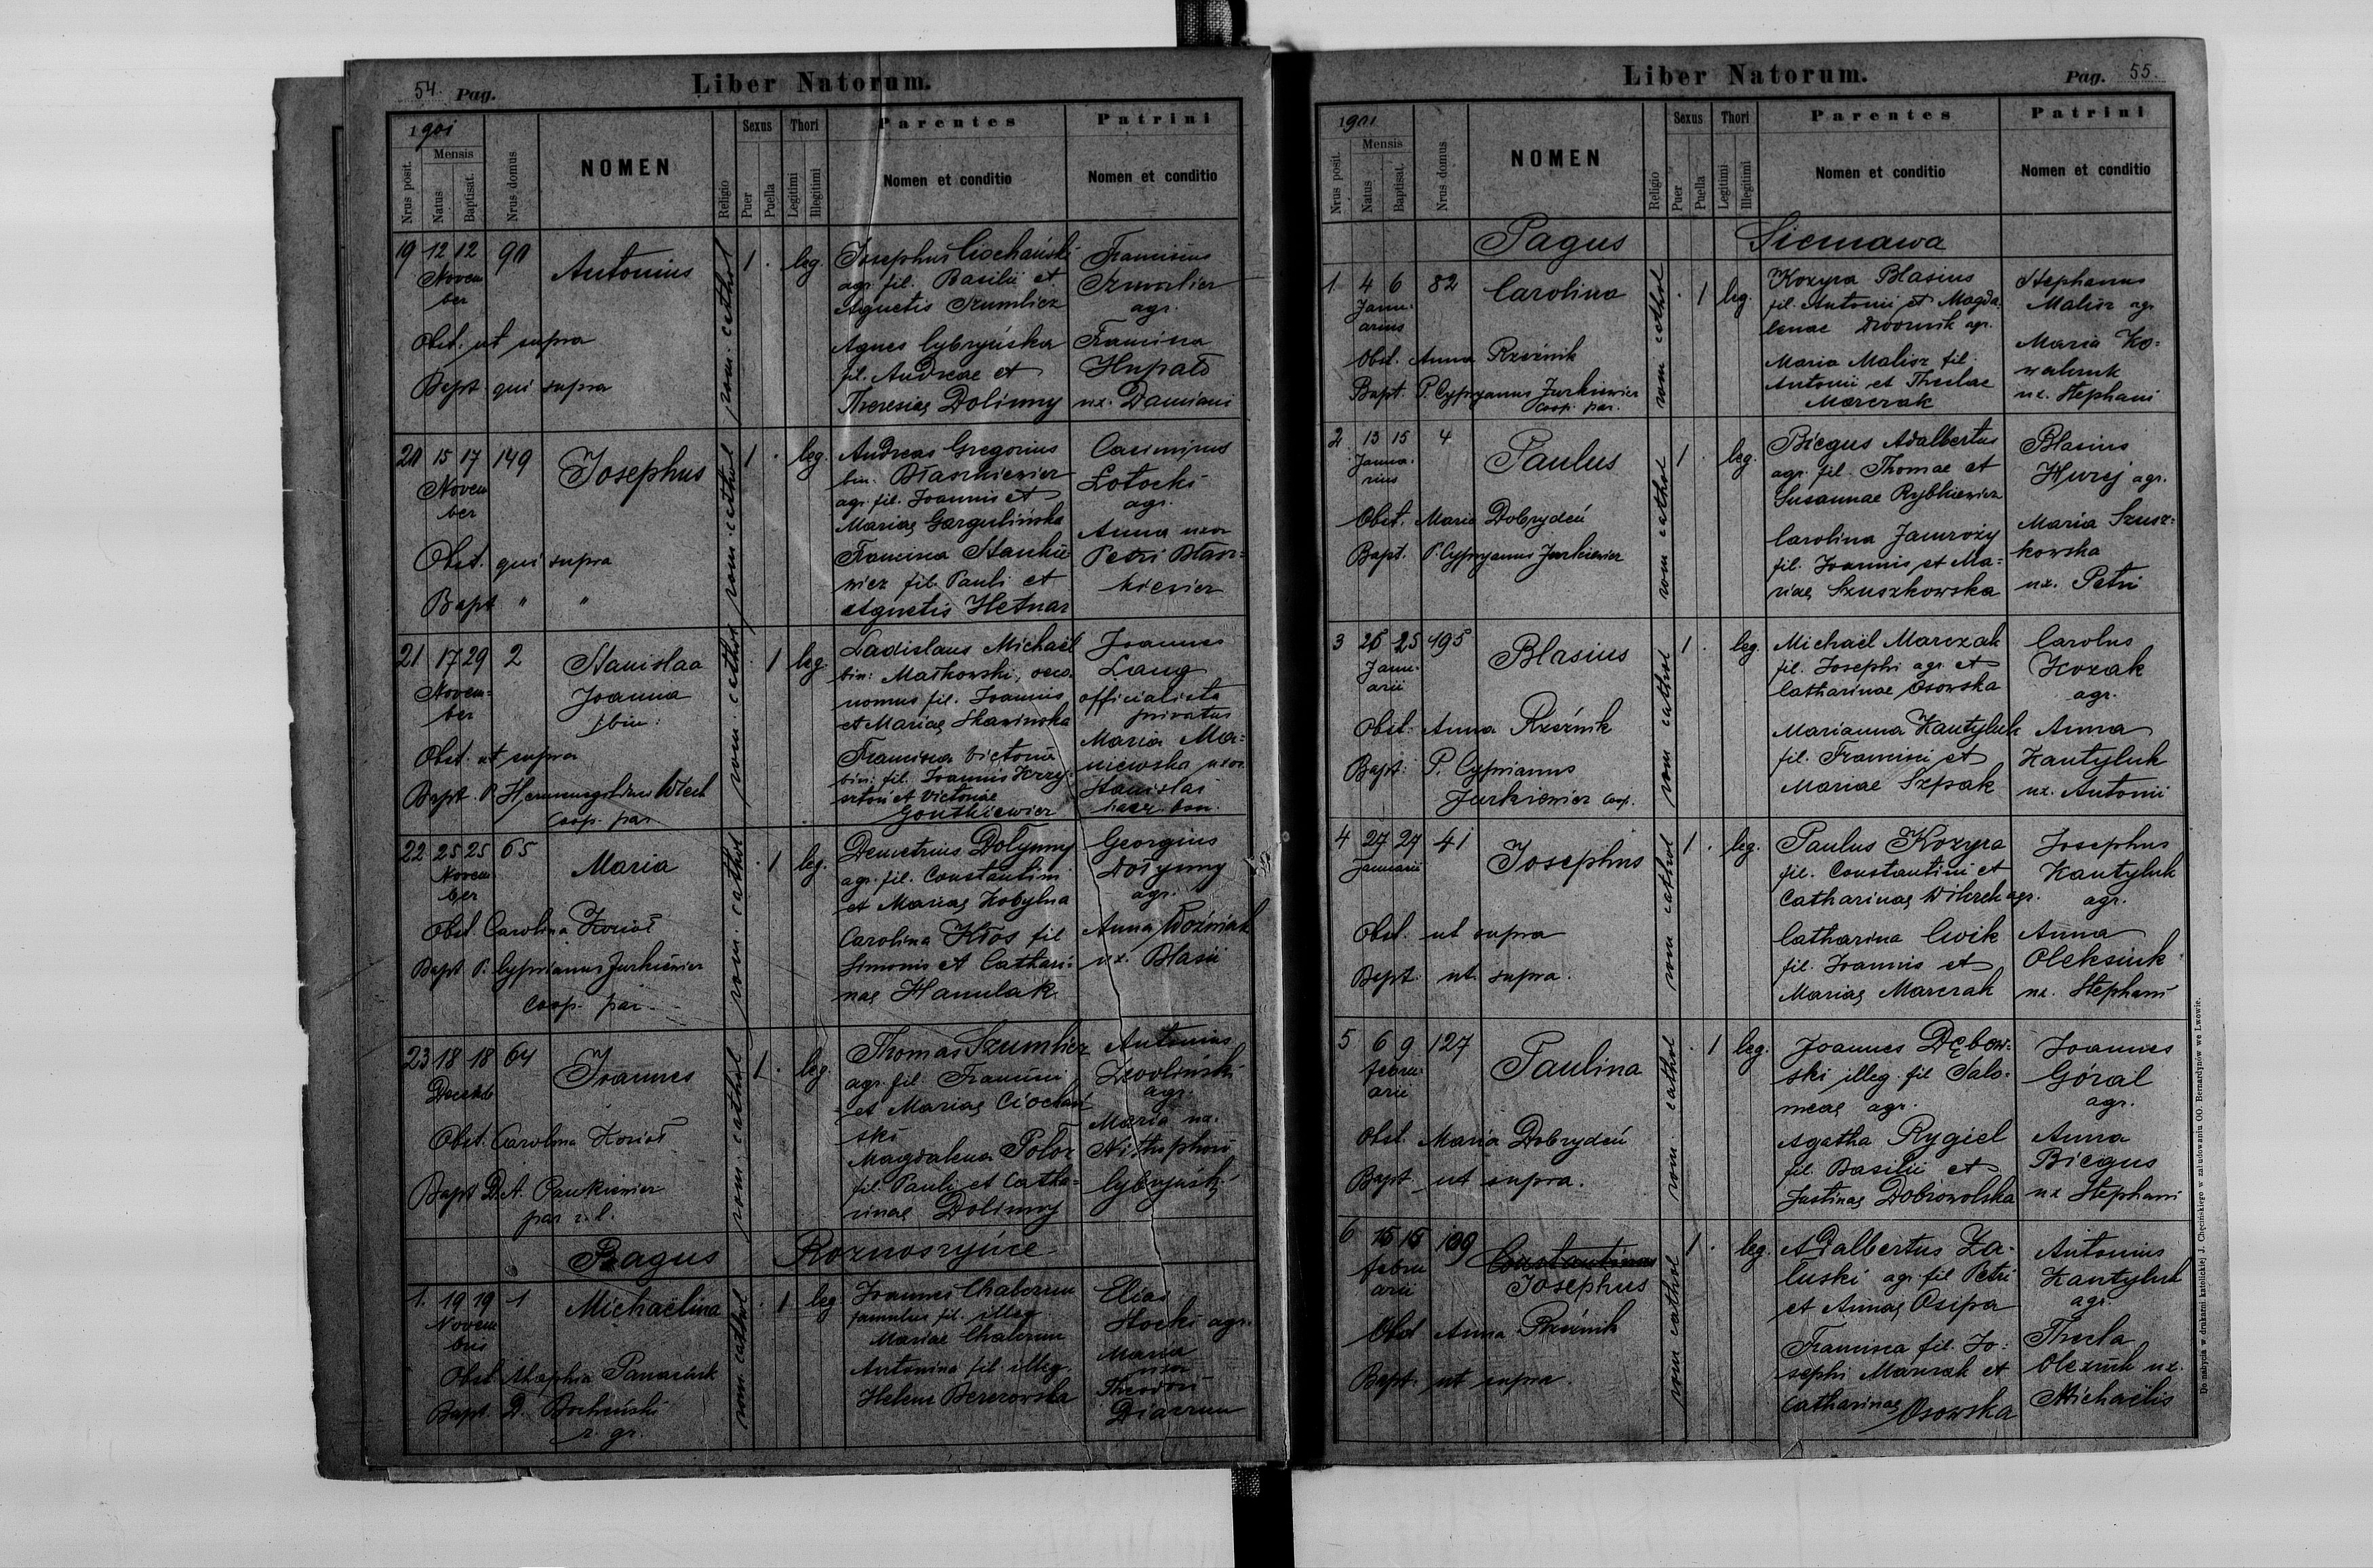 54. Pag.
Liber Natorum.
1901
Mensis
Nrus posit.
Natus
Baptisat.
Nrus domus
NOMEN
Religio
Sexus
Puer
Puella
Thori
Legitimi
Illegitimi
Parentes
Nomen et conditio
Patrini
Nomen et conditio
19 12 12 90
Novem
ber
Antonius
rom. cathol
1 . leg.
Josephus Ciochański
agr. fil. Basilii et
Agnetis Szumlicz
Agnes Cybryńska
fil. Andreae et
Theresiae Dolinny
agr.
Hupało
ux. Damiani
Obst. ut supra
Bapt qui supra
20 15 17 149
Novem
ber
Josephus
rom. cathol
1 . leg.
Andreas Gregorius
bin. Błaszkiewicz
agr. fil. Joannis et
Mariae Gargulińska
Francisca Stankie-
wicz fil. Pauli et
Agnetis Hetnar
Casimirus
Łotocki
agr.
Anna uxor
Petri Błasz-
kiewicz
Obst. qui supra
Bapt " "
21 17 29 2
Novem-
ber
Stanislaa
Joanna
bin:
rom. cathol
. 1 leg
Ladislaus Michaël
bin: Małkowski, oeco.
nomus fil. Joannis
et Mariae Skawinska
Francisca Victoria
bin: fil. Joannis Krzy-
et Victoriae
Joannes
Lang
officialista
privatus
Maria Ma-
niewska uxor
Stanislai
Obst. ut supra
Coop. par
22 25 25 65
Novem
ber
Maria
rom. cathol
. 1 leg.
Demetrius Dołynny
agr. fil. Constantini
et Mariae Kobylna
Carolina Kłos fil
Simonis et Cathari-
nae Hanulak
Georgius
Dołynny
agr.
Anna Woźniak
ux. Blasii
Obst. Carolina Kozioł
Bapt P. Cyprianus Jurkiewicz
coop. par.
23 18 18 64
Joannes
rom. cathol
1 . leg.
Thomas Szumlicz
agr. fil. Francisci
et Mariae Ciochań
ski
Magdalena Połoz
fil. Pauli et Catha-
rinae Dolinny
Antonius
Zwoliński
agr.
Maria ux.
Obst. Carolina Kozioł
par r. l.
Pagus Roznoszyńce
1. 19 19 1
Novem
bris
Michaëlina
rom. cathol
. 1 leg
famulus fil. illeg
Antonina fil. illeg.
Helena Berezowska
Elias
agr.
Maria
uxor
Theodori
Obst
Bapt. D. Bocheński
r. gr.
Liber Natorum.
Pag. 55.
1901
Mensis
Nrus posit.
Natus
Baptisat.
Nrus domus
NOMEN
Religio
Sexus
Puer
Puella
Thori
Legitimi
Illegitimi
Parentes
Nomen et conditio
Patrini
Nomen et conditio
Pagus Sieniawa
1 4 6 82
Janu-
arius
Carolina
rom cathol
. 1 leg.
Kozyra Blasius
fil. Antonii et Magda
lenae Dwornik agr.
Maria Malisz fil.
Antonii et Theclae
Marczak
Stephanus
Malisz agr
Maria Ko-
waluk
ux. Stephani
Obst. Anna Rzeźnik
Bapt. P. Cypryanus Jurkiewicz
Coop. par.
2. 13 15 4
Janua-
rius
Paulus
rom cathol
1 . leg.
Biegus Adalbertus
agr. fil. Thomae et
Susannae Rybkiewicz
Carolina Jamroży
fil. Joannis et Ma-
riae Szuszkowska
Blasius
Hurej agr.
Maria Szusz-
kowska
ux. Petri
Obst. Maria Dobrydeń
Bapt. P. Cypryanus Jurkiewicz
3 25 25 195
Janu-
arii
Blasius
rom cathol
1 . leg.
Michaël Marczak
fil. Josephi agr. et
Catharinae Osowska
Marianna Kantyluk
fil. Francisci et
Mariae Szpak
Carolus
Kozak
agr.
Anna
Kantyluk
ux. Antonii
Obst: Anna Rzeźnik
Bapt: P. Cyprianus
Jurkiewicz coop.
4 27 27 41
Januarii
Josephus
rom cathol
1 . leg.
Paulus Kozyra
fil. Constantini et
Catharinae Wilczek agr.
Catharina Cwik
fil. Joannis et
Mariae Marczak
Josephus
Kantyluk
agr.
Anna
Oleksiuk
ux. Stephani
Obst. ut supra
Bapt. ut supra.
5 6 9 127
Febru-
arii
Paulina
rom. cathol
. 1 leg.
Joannes Dębow-
ski illeg. fil Salo-
meae agr.
Agatha Rygiel
fil. Basilii et
Justinae Dobrowolska
Joannes
Góral
agr.
Anna
Biegus
ux Stephani
Obst. Maria Dobrydeń
Bapt. ut supra.
6 15 15 109
Febru
arii
Constantinus
Josephus
rom cathol
1 . leg.
Adalbertus Za-
łuski agr. fil Petri
et Annae Osipa
Francisca fil. Jo-
sephi Marczak et
Catharinae Osowska
Antonius
Kantyluk
agr.
Thecla
ux.
Michaëlis
Obst Anna Rzeźnik
Bapt. ut supra.
Do nabycia w drukarni katolickiej J. Chęcińskiego w zabudowaniu OO. Bernardynów we Lwowie.